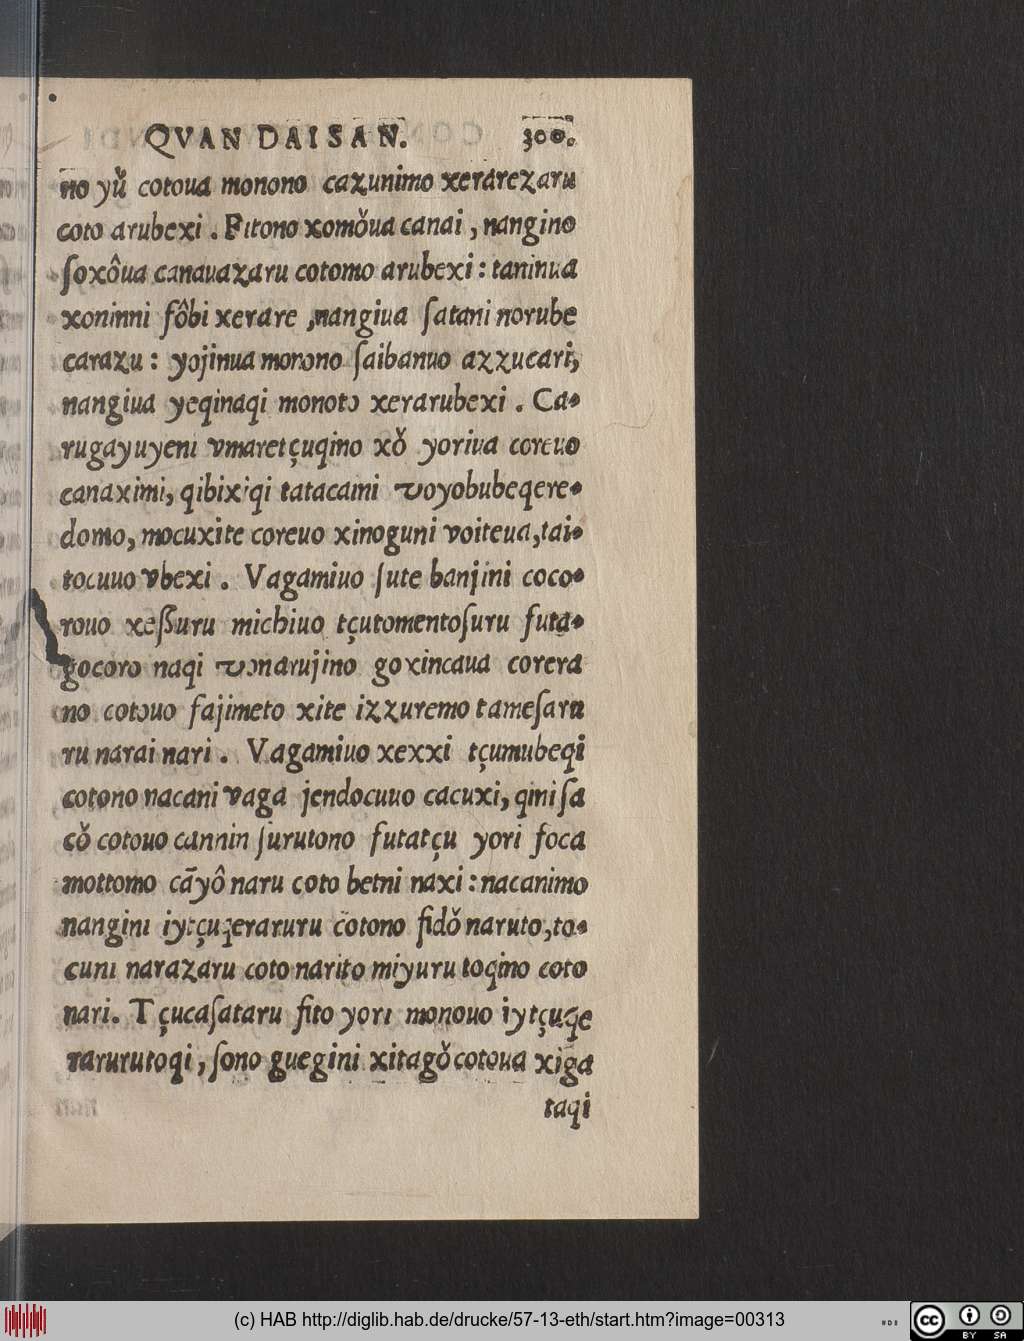 QVAN DAI SAN. 300.
no yŭ cotoua monono cazunimo xerarezaru
coto arubexi . Fitono xomǒua canai , nangino
ſoxôua canauazaru cotomo arubexi : taninua
xoninni fôbi xerare ,nangiua ſatani norube
carazu : yojinua monono ſaibanuo azzucari,
nangiua yeqinaqi monoto xerarubexi . Ca-
rugayuyeni vmaretçuqino xǒ yoriua coreuo
canaximi, qibixiqi tatacami voyobubeqere-
domo, mocuxite coreuo xinoguni voiteua,tai-
tocuuo vbexi . Vagamiuo ſute banjini coco-
rouo xeſſuru michiuo tçutomentoſuru futa-
gocoro naqi vonarujino goxincaua corera
no cotouo fajimeto xite izzuremo tameſaru
ru narai nari . Vagamiuo xexxi tçumubeqi
cotono nacani vaga jendocuuo cacuxi, qini ſa
cǒ cotouo cannin ſurutono futatçu yori foca
mottomo cãyô naru coto betni naxi : nacanimo
nangini iytçuqeraruru cotono fidǒ naruto,to-
cuni narazaru coto narito miyuru toqino coto
nari. Tçucaſataru fito yori monouo iytçuqe
rarurutoqi , ſono guegini xitagǒ cotoua xiga
taqi
(c) HAB http://diglib.hab.de/drucke/57-13-eth/start.htm?image=00313
cc BY SA